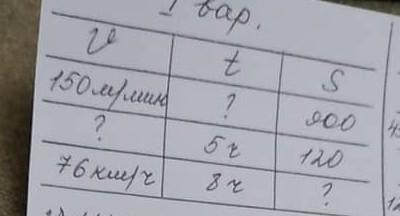 I вар.
v t S
150 м/мин ? 900
? 5 ч 120
76 км/ч 8 ч ?